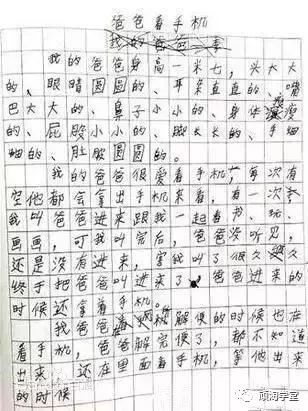 爸爸看手机
我的爸爸身高一米七,头大大
的、眼睛圆圆的、耳朵直直的、嘴
巴大大的、鼻子小小的、身体瘦瘦
的、屁股小小的、脚长长的、手细
细的、肚脐圆圆的。
我的爸爸很爱看手机,每次有
空他都会拿出手机来看,有一次李
我叫爸爸进来跟我一起看书、玩、
画画,可我叫完后,爸爸没听见,
还是没有进来,害我叫了很久久久
终于把爸爸叫进来了,爸爸进来的
时候还拿着手机。
我爸爸解便的时候也在
看手机,爸爸解完便了,都不知道
出来,还在里面看手机,等他出来
的时候
顽淘学堂